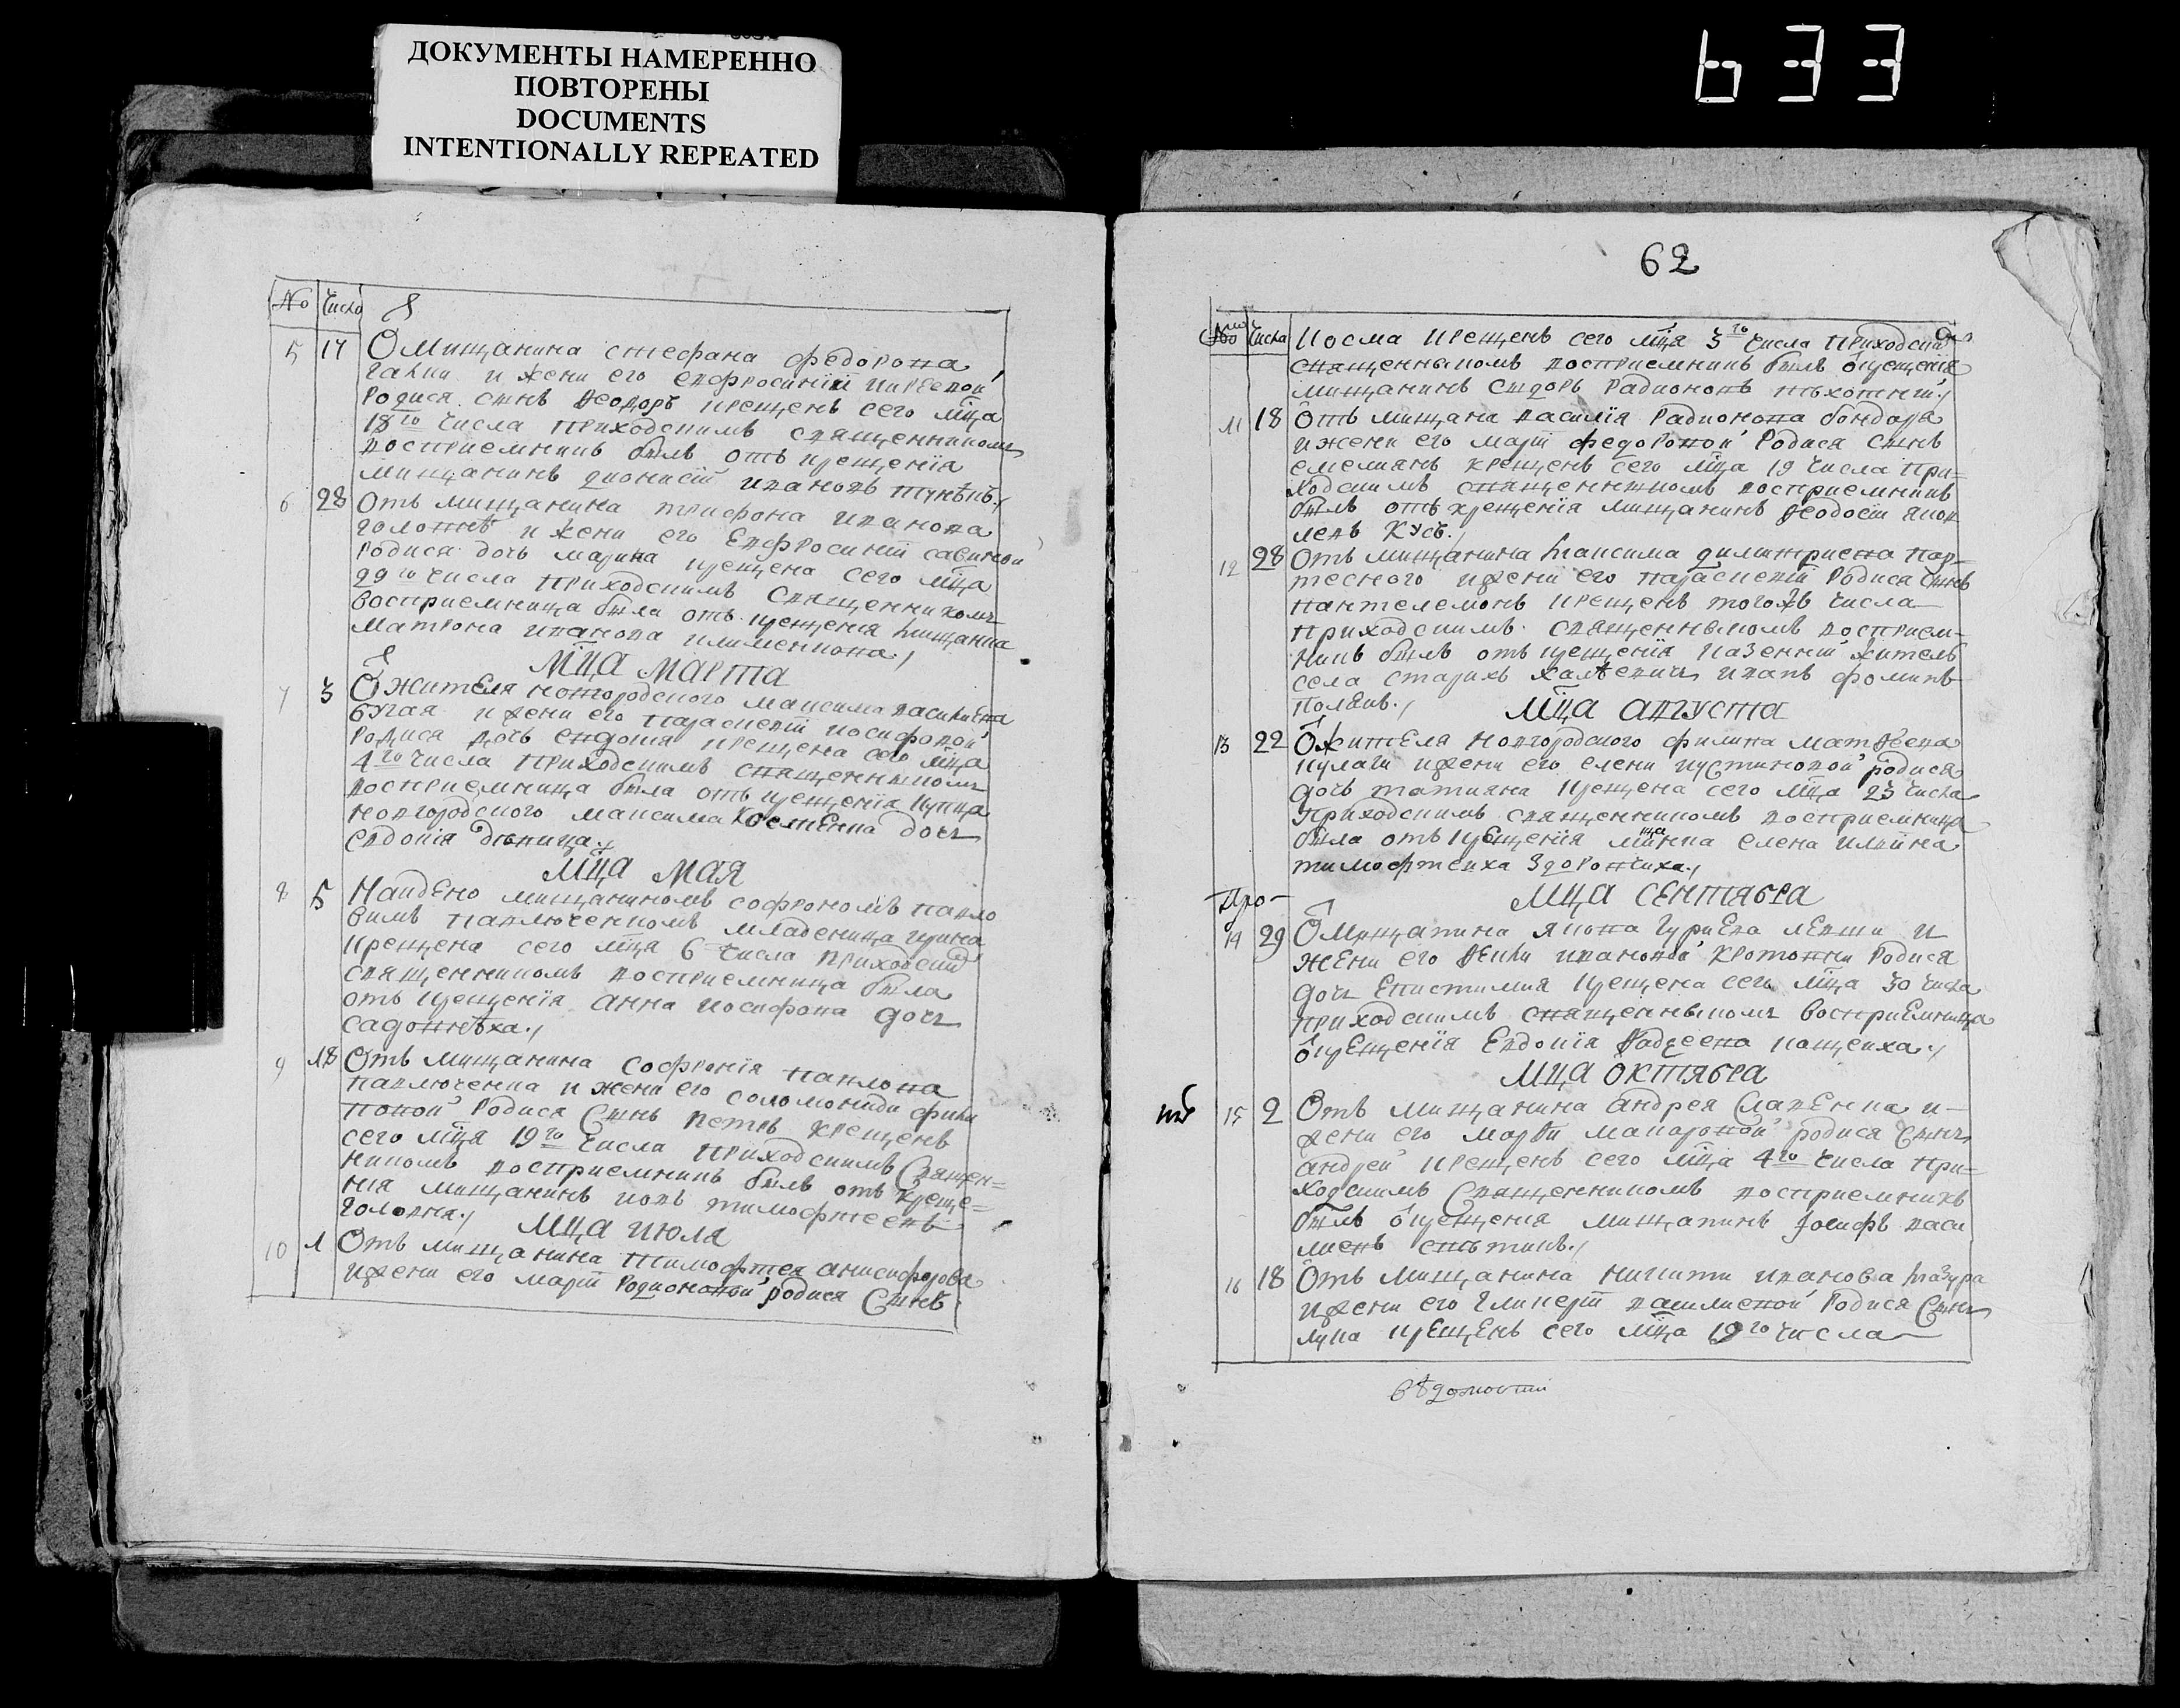 ДОКУМЕНТЫ НАМЕРЕННО
ПОВТОРЕНЫ
DOCUMENTS
INTENTIONALLY REPEATED
633
No Числа
5 17 О Мищанина стефана федорова
и жени его евфросинїи
Родися сынъ Ѳеодоръ крещенъ сего мца
18го числа приходскимъ священникомъ
восприемникъ былъ отъ крещенїя
мищанинъ дионисїй ивановъ
6 28 Отъ мищанина трифона иванова
и жени его Евфросинїи савиной
Родися дочь марина крещена сего мца
29го числа приходскимъ священникомъ
восприемница была отъ крещенїя мищанка
матрона иванова
Мца марта
7 3 О Жителя новгородского максима василиева
бугая и жени его параскевїи иосифовой
Родися дочь евдокия крещена сего мца
4го числа приходскимъ священникомъ
восприемница была отъ крещенїя купца
новгородского максима дочь
евдокїя девица
Мца мая
8 5 Найдено мищаниномъ софрономъ павло
вимъ павлюченкомъ младеница ирина
крещена сего мца 6 числа приходским
священникомъ восприемница была
отъ крещенїя анна иосифова дочь

9 18 Отъ мищанина софронїя павлова
павлюченка и жени его соломониди фили
повой Родися Сынъ петръ крещенъ
сего мца 19го числа приходскимъ Священ=
никомъ восприемникъ былъ отъ креще=
нїя мищанинъ иовъ тимофеевъ
головня
Мца июля
10 1 Отъ мищанина тимофтея анисифорова
и жени его марїи Родионовой родися Сынъ
62
No Числа
косма крещенъ сего мца 3го числа приходским
священникомъ восприемникъ былъ о крещенїя
мищанинъ сидоръ Радионовъ
11 18 Отъ мищана василїя Радионова бондаря
и жени его марїи федоровой Родися сынъ
емелиянъ крещенъ сего мца 19 числа при=
ходскимъ священникомъ восприемникъ
былъ отъ крещенїя мищанинъ Ѳеодосїй яков
левъ Кусъ
12 28 Отъ мищанина максима димитриева пор=
тесного и жени его параскевїи Родися сынъ
пантелемонъ крещенъ тогожъ числа
приходскимъ священникомъ восприем=
никъ былъ отъ крещенїя казенний житель
села старихъ иванъ фоминъ

Мца августа
13 22 О жителя новгородского филипа матвеева
кулаги и жени его елени иустиновой родися
дочь татияна крещена сего мца 23 числа
приходскимъ священникомъ восприемница
была отъ крещенїя мищанка елена
тимофтеиха
Про-
Мца сентября
14 29 О Мищанина якова Гуриева левши и
жени его Ѳекли ивановой Родися
дочь Епистимия крещена сего мца 30 числа
приходскимъ священникомъ восприемница
о крещенїя Евдокїя Ѳадеева
Мца октября
15 2 Отъ мищанина андрея и=
жени его марѳи макаровой родися Сынъ
андрей крещенъ сего мца 4го числа при=
ходскимъ Священникомъ восприемникъ
былъ о крещенїя мищанинъ Иосифъ васи
лиевъ
16 18 Отъ мищанина никити иванова мазура
и жени его гликерїи василиевой Родися Сынъ
лука крещенъ сего мца 19го числа
вѣдомости